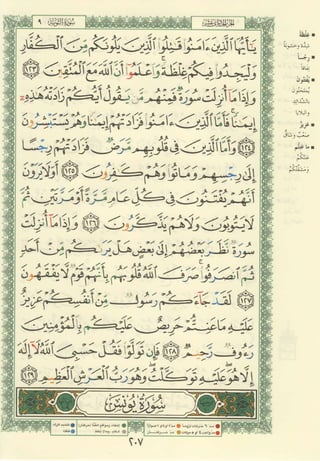 سورة التوبة ٩
يَٰٓأَيُّهَا ٱلَّذِينَ ءَامَنُوا۟ قَٰتِلُوا۟ ٱلَّذِينَ يَلُونَكُم مِّنَ ٱلْكُفَّارِ
وَلْيَجِدُوا۟ فِيكُمْ غِلْظَةً ۚ وَٱعْلَمُوٓا۟ أَنَّ ٱللَّهَ مَعَ ٱلْمُتَّقِينَ ١٢٣
وَإِذَا مَآ أُنزِلَتْ سُورَةٌ فَمِنْهُم مَّن يَقُولُ أَيُّكُمْ زَادَتْهُ هَٰذِهِۦٓ
إِيمَٰنًا ۚ فَأَمَّا ٱلَّذِينَ ءَامَنُوا۟ فَزَادَتْهُمْ إِيمَٰنًا وَهُمْ يَسْتَبْشِرُونَ
١٢٤ وَأَمَّا ٱلَّذِينَ فِى قُلُوبِهِم مَّرَضٌ فَزَادَتْهُمْ رِجْسًا
إِلَىٰ رِجْسِهِمْ وَمَاتُوا۟ وَهُمْ كَٰفِرُونَ ١٢٥ أَوَلَا يَرَوْنَ
أَنَّهُمْ يُفْتَنُونَ فِى كُلِّ عَامٍ مَّرَّةً أَوْ مَرَّتَيْنِ ثُمَّ
لَا يَتُوبُونَ وَلَا هُمْ يَذَّكَّرُونَ ١٢٦ وَإِذَا مَآ أُنزِلَتْ
سُورَةٌ نَّظَرَ بَعْضُهُمْ إِلَىٰ بَعْضٍ هَلْ يَرَىٰكُم مِّنْ أَحَدٍ
ثُمَّ ٱنصَرَفُوا۟ ۚ صَرَفَ ٱللَّهُ قُلُوبَهُم بِأَنَّهُمْ قَوْمٌ لَّا يَفْقَهُونَ
١٢٧ لَقَدْ جَآءَكُمْ رَسُولٌ مِّنْ أَنفُسِكُمْ عَزِيزٌ
عَلَيْهِ مَا عَنِتُّمْ حَرِيصٌ عَلَيْكُم بِٱلْمُؤْمِنِينَ
رَءُوفٌ رَّحِيمٌ ١٢٨ فَإِن تَوَلَّوْا۟ فَقُلْ حَسْبِىَ ٱللَّهُ لَآ إِلَٰهَ
إِلَّا هُوَ ۖ عَلَيْهِ تَوَكَّلْتُ ۖ وَهُوَ رَبُّ ٱلْعَرْشِ ٱلْعَظِيمِ ١٢٩
سُورَةُ يُونُسَ
٢٠٧